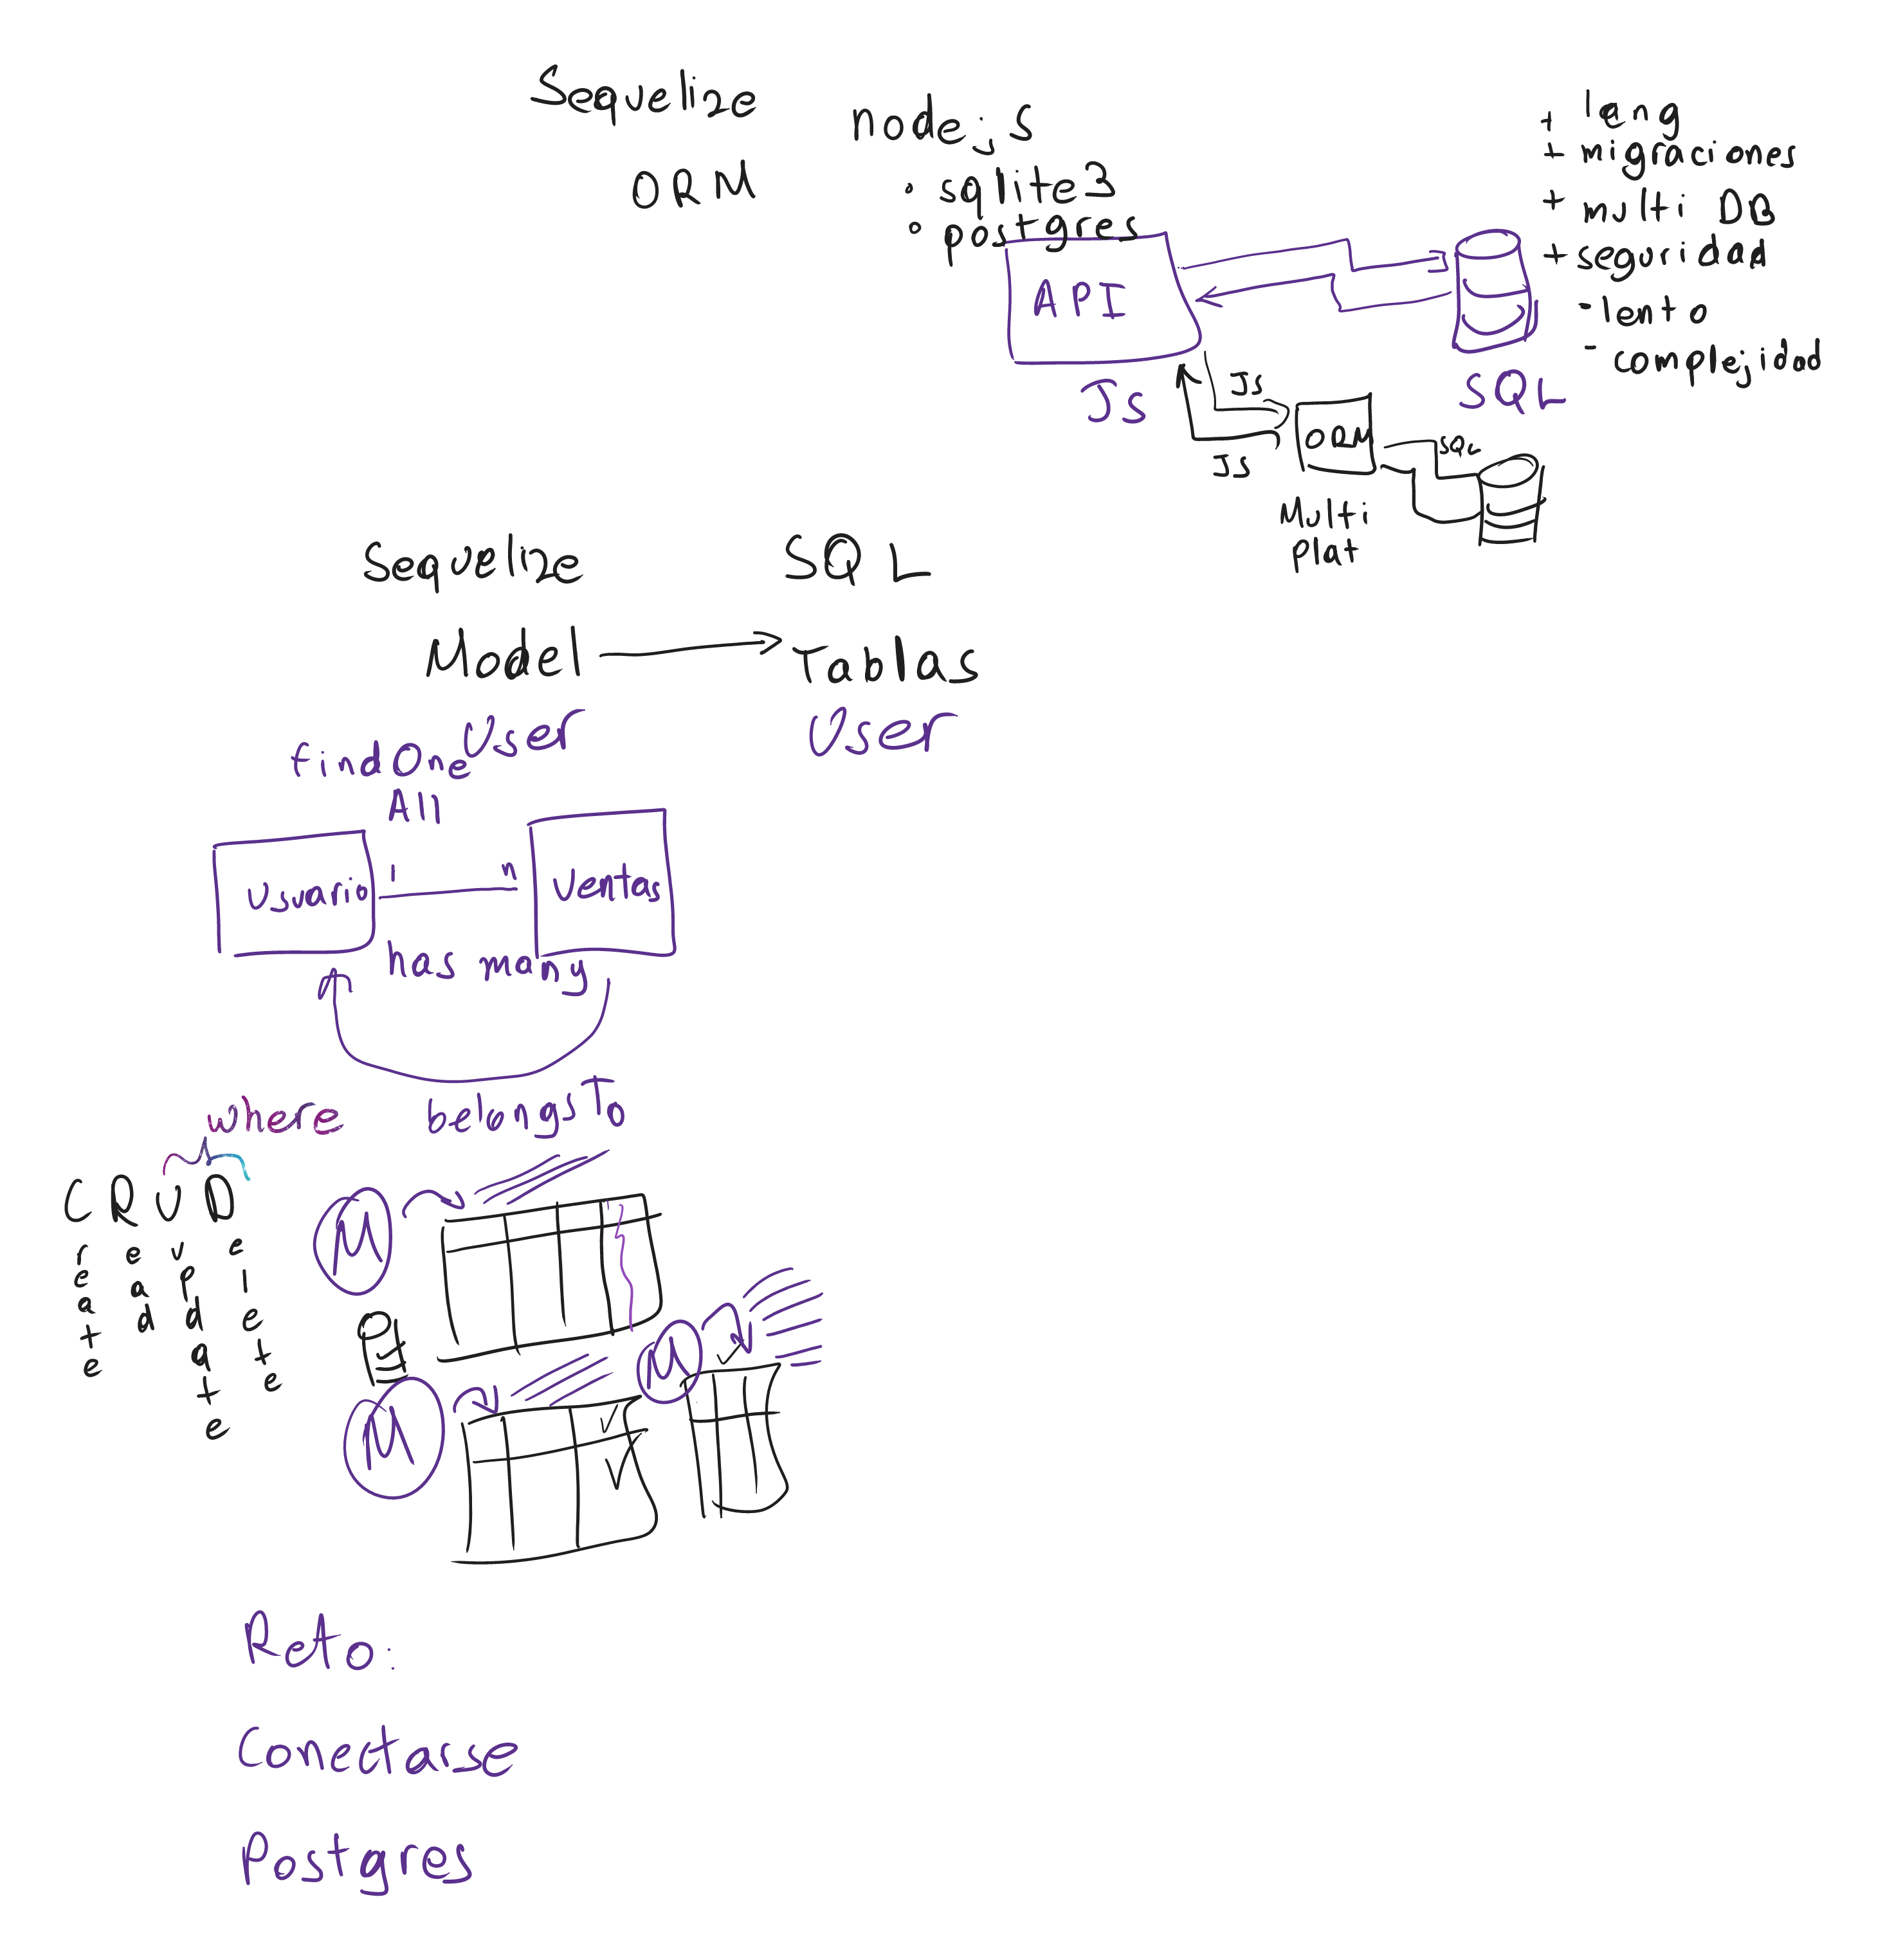 Sequelize
ORM
nodejs
• sqlite3
• postgres
API
Js
SQL
+ lang
+ migraciones
+ multi DB
+ seguridad
- lento
- complejidad
Js
Js
ORM
SQL
Multi
plat
Sequelize SQL
Model → Tablas
User User
findOne
All
Usuario 1 n Ventas
has many
belongsTo
where
C R U D
Create
Read
Uupdate
Delete
M
M
M
Reto:
Conectarse
Postgres